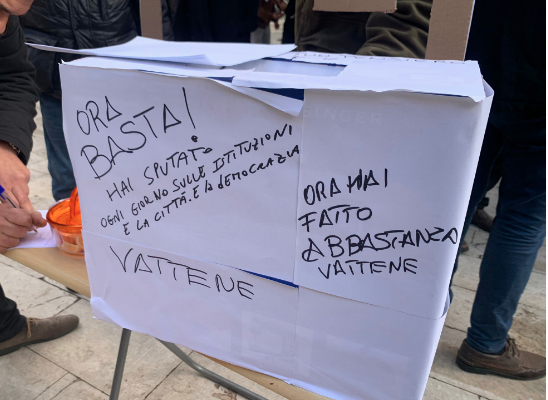 ORA
BASTA!
HAI SPUTATO
OGNI GIORNO SULLE ISTITUZIONI
E LA CITTÀ. E la DEMOCRAZIA
VATTENE
ORA HAI
FATTO
ABBASTANZA
VATTENE